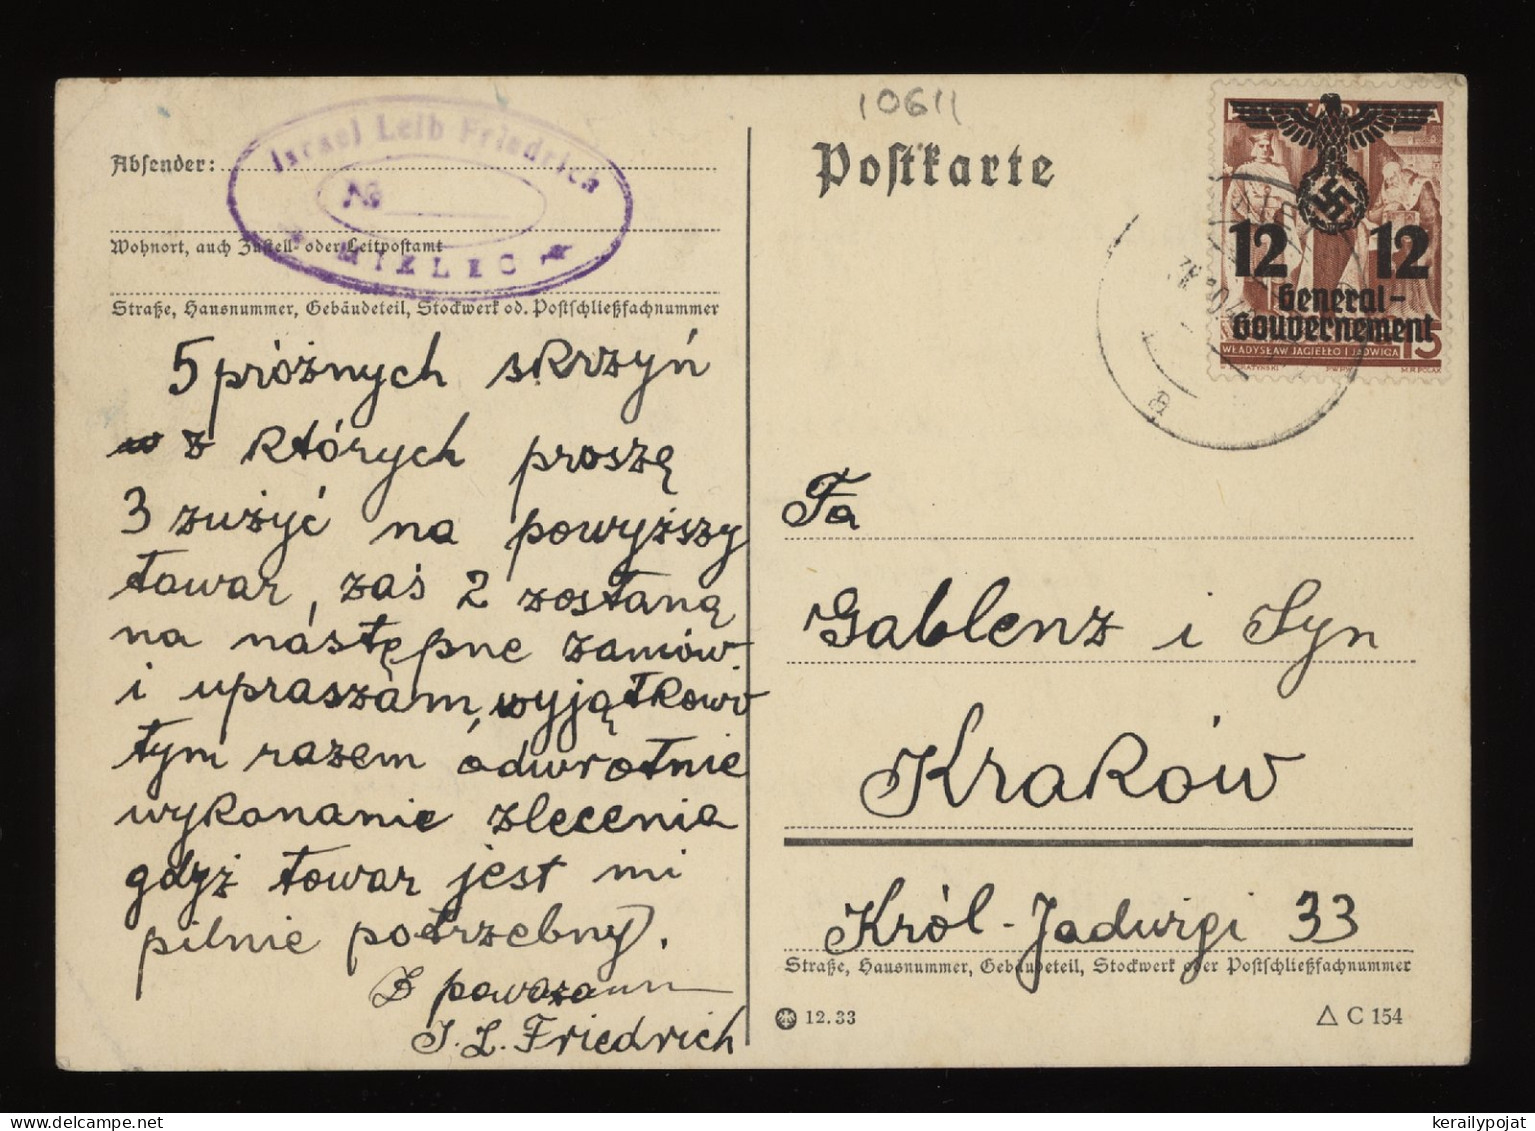 10611
Israel Leib Friedrich
№
MIELEC
Absender:
Wohnort, auch Zustell- oder Leitpostamt
Straße, Hausnummer, Gebäudeteil, Stockwerk od. Postschließfachnummer
5 próżnych skrzyń
z których proszę
3 zużyć na powyższy
towar, zaś 2 zostaną
na następne zamów.
i upraszam, wyjątkowo
tym razem odwrotnie
wykonanie zlecenia
gdyż towar jest mi
pilnie potrzebny.
Z poważann
J. L. Friedrich
Postkarte
12 12
General-
Gouvernement
15
WŁADYSŁAW JAGIEŁŁO I JADWIGA
M.R.POLAK
Fa
Gablenz i Syn
Kraków
Król-Jadwigi 33
Straße, Hausnummer, Gebäudeteil, Stockwerk oder Postschließfachnummer
12.33
C 154
kerailypojat
www.delcampe.net